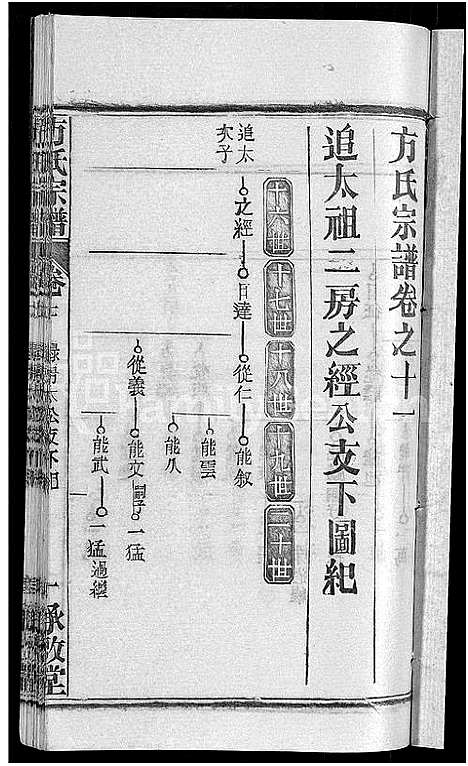 方氏宗譜卷之十一
追太祖三房之經公支下圖紀
十六世
十七世
十八世
十九世
二十世
追太
次子
之經
日達
從仁
能敘
能雲
能久
從義
能文
嗣子
一猛
能武
一猛過繼
方氏宗譜
卷十一
一
承啟堂